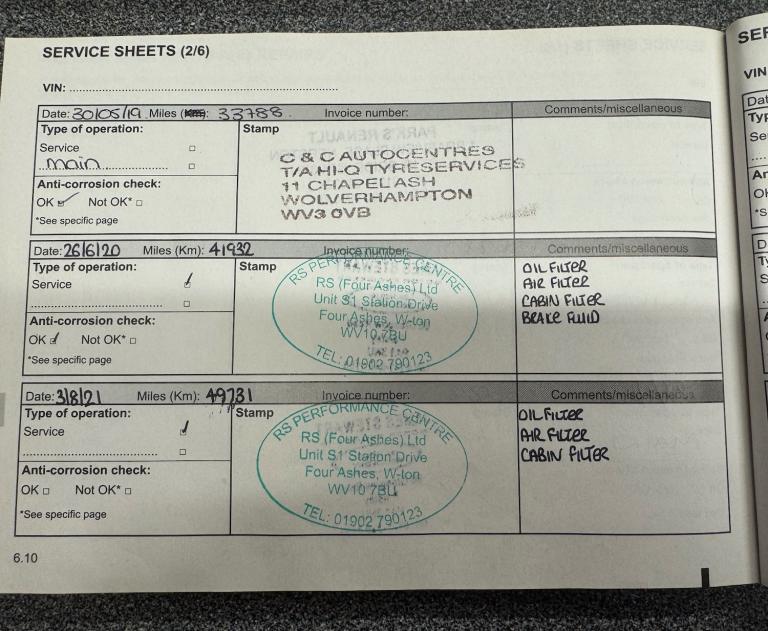 SERVICE SHEETS (2/6)
VIN:
Date: 30/05/19 Miles (Km): 33788. Invoice number: Comments/miscellaneous
Type of operation:
Service
main
Anti-corrosion check:
OK Not OK*
*See specific page
Stamp
C & C AUTOCENTRES
T/A HI-Q TYRESERVICES
11 CHAPEL ASH
WOLVERHAMPTON
WV3 0VB
Date: 26/6/20 Miles (Km): 41932 Invoice number: Comments/miscellaneous
Type of operation:
Service
Anti-corrosion check:
OK Not OK*
*See specific page
Stamp
RS PERFORMANCE CENTRE
RS (Four Ashes) Ltd
Unit S1 Station Drive
Four Ashes, W-ton
WV10 7BU
TEL: 01902 790123
OIL FILTER
AIR FILTER
CABIN FILTER
BRAKE FLUID
Date: 3/8/21 Miles (Km): 49731 Invoice number: Comments/miscellaneous
Type of operation:
Service
Anti-corrosion check:
OK Not OK*
*See specific page
Stamp
RS PERFORMANCE CENTRE
RS (Four Ashes) Ltd
Unit S1 Station Drive
Four Ashes, W-ton
WV10 7BU
TEL: 01902 790123
OIL FILTER
AIR FILTER
CABIN FILTER
6.10